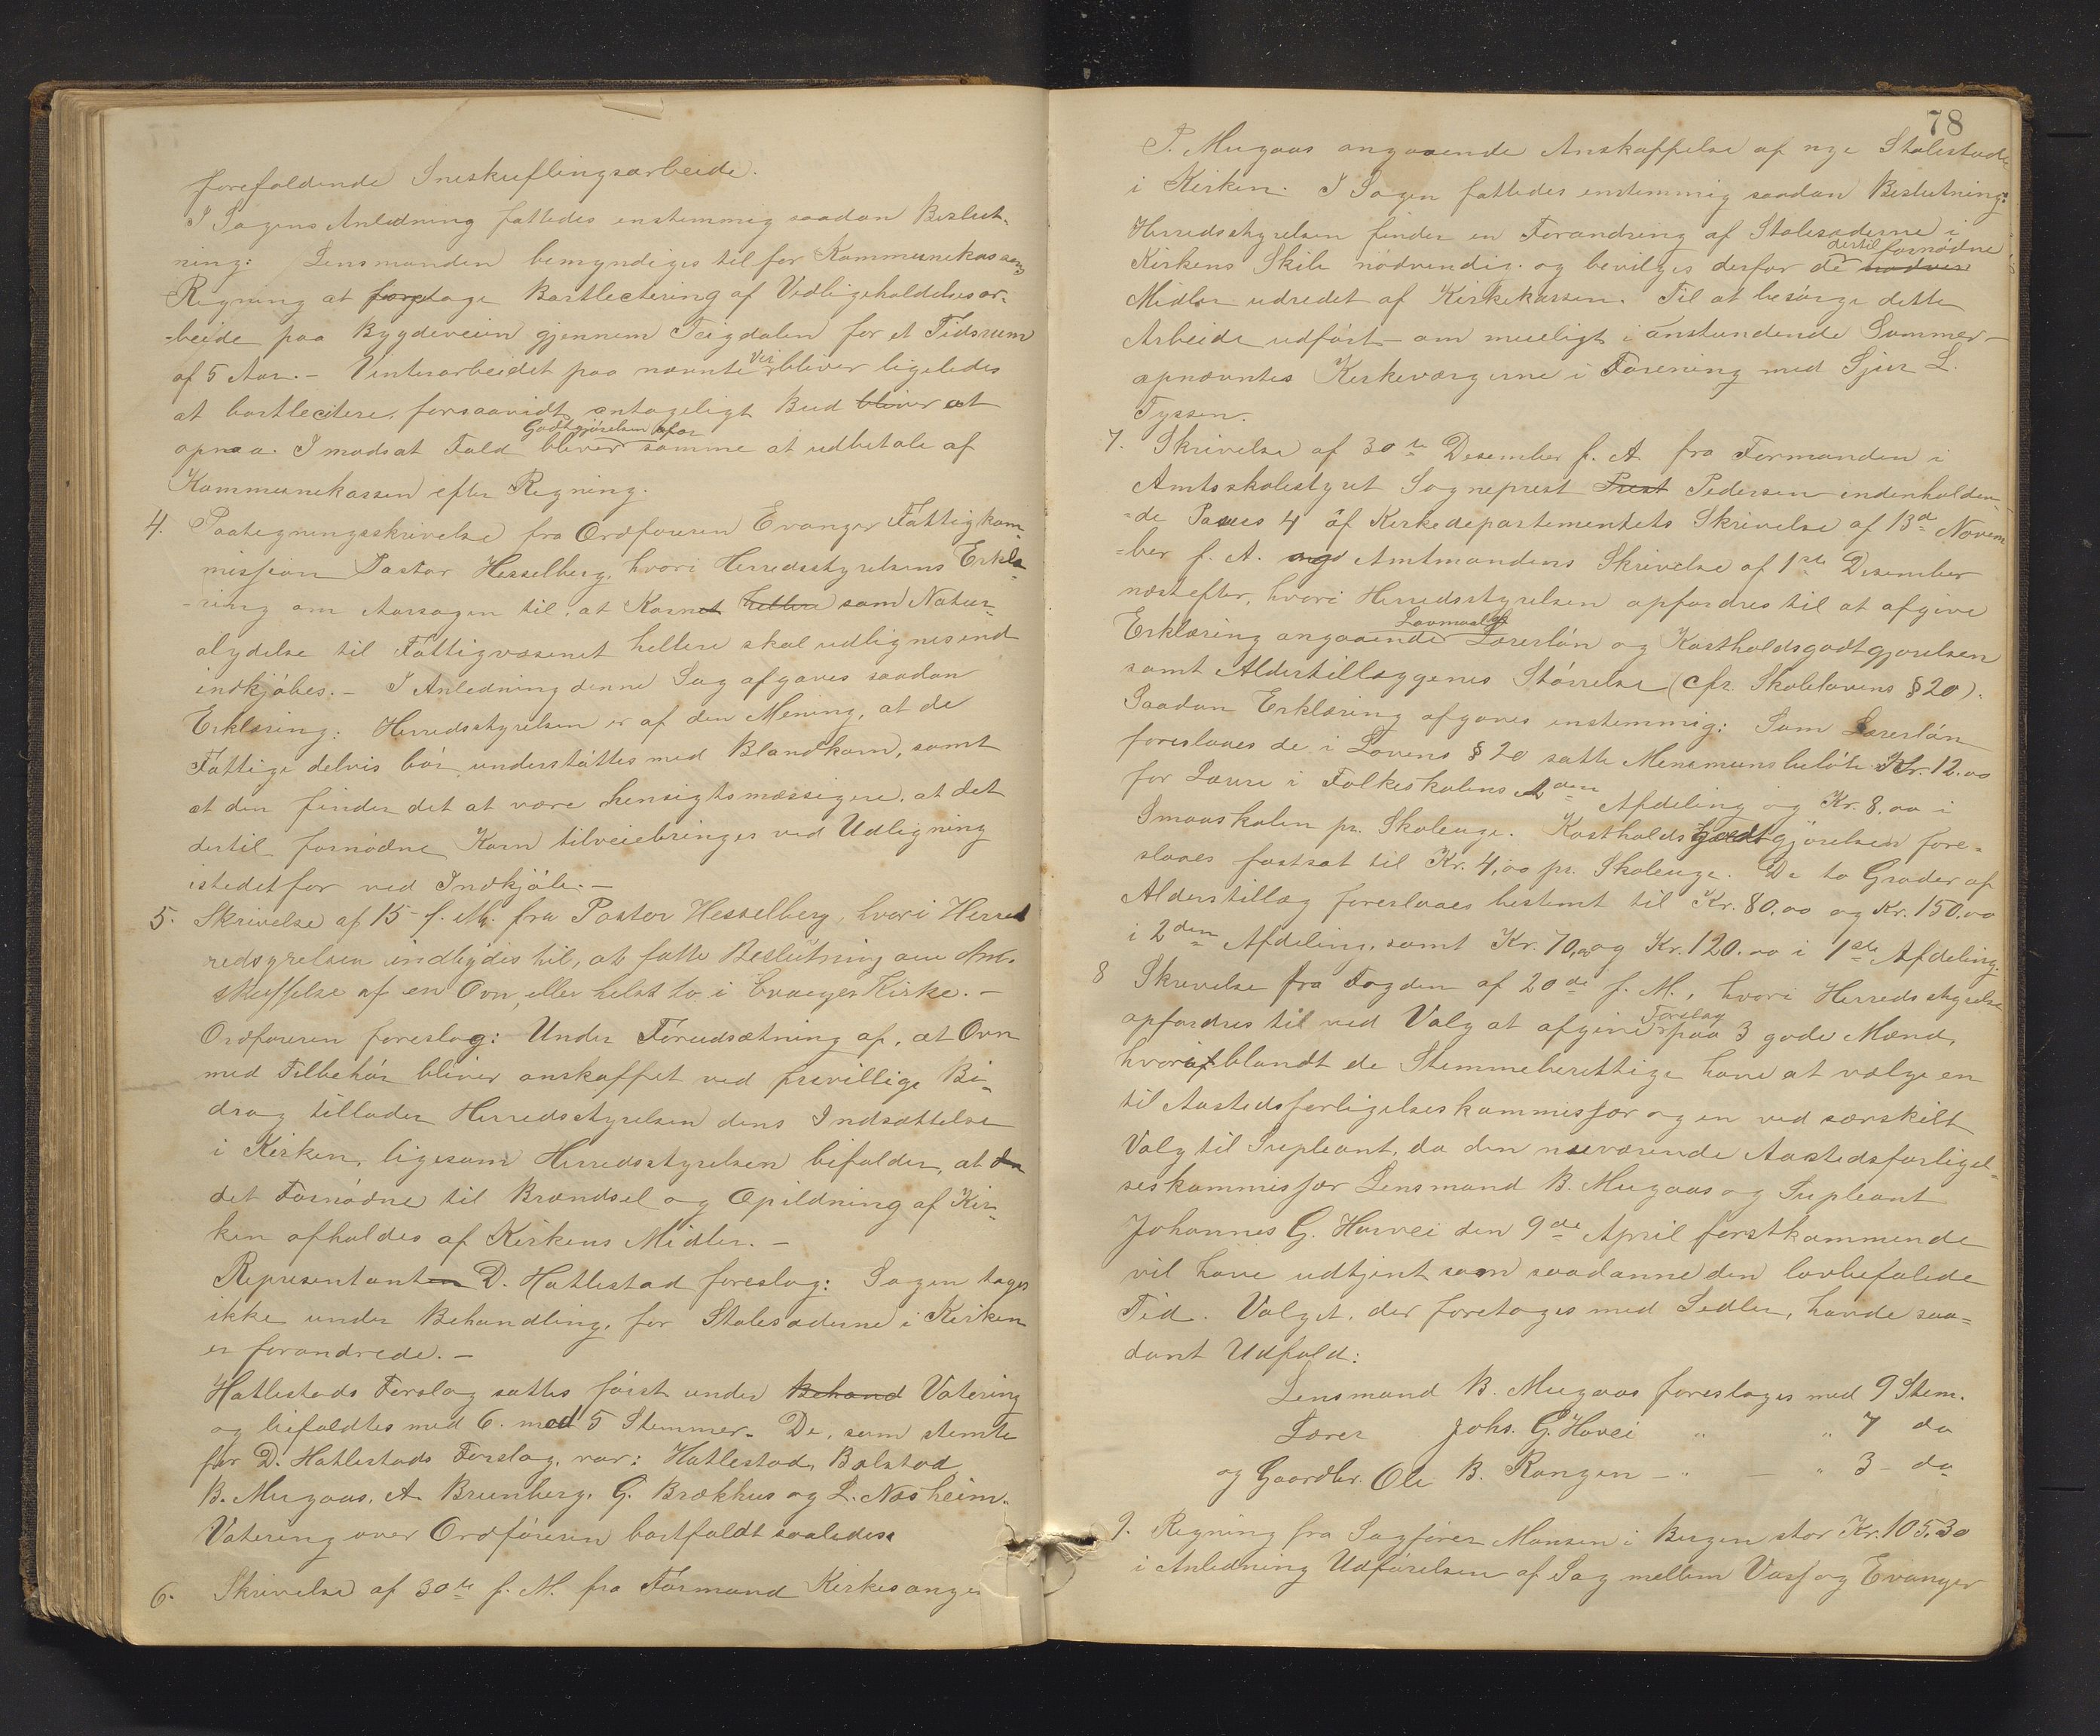 forefaldende Sneskuflingsarbeide.
I Sagens Anledning fattedes enstemmig saadan Beslut-
ning: Lensmanden bemyndiges til for Kommunekassens
Regning at foretage Bortlicitering af Vedligeholdelsesar-
-beide paa Bygdeveien gjennem Teigdalen for et Tidsrum
af 5 Aar. – Vinterarbeidet paa nævnte Vei bliver ligeledes
at bortlicitere, forsaavidt antageligt Bud bliver at
opnaa. I modsat Fald bliver Godtgjørelsen for samme at udbetale af
Kommunekassen efter Regning.
4. Paategningsskrivelse fra Ordføreren i Evanger Fattigkom-
mission Pastor Hesselberg, hvori Herredsstyrelsens Erklæ-
-ring om Aarsagen til, at Kornet hellere som Natur-
alydelse til Fattigvæsenet hellere skal udlignes end
indkjøbes. – I Anledning denne Sag afgaves saadan
Erklæring: Herredsstyrelsen er af den Mening, at de
Fattige delvis bør understøttes med Blandkorn, samt
at den finder det at være hensigtsmæssigere, at det
dertil fornødne Korn tilveiebringes ved Udligning
istedetfor ved Indkjøb. –
5. Skrivelse af 15 f. M. fra Pastor Hesselberg, hvori Herred
redsyrelsen indbydes til, at fatte Beslutning om An-
skaffelse af en Ovn, eller helst to i Evanger Kirke. –
Ordføreren foreslog: Under Forudsætning af, at Ovn
med Tilbehør bliver anskaffet ved frivillige Bi-
drag tillader Herredsstyrelsen dens Indsættelse
i Kirken, ligesom Herredsstyrelsen bifalder, at
det Fornødne til Brændsel og Opildning af Kir-
ken afholdes af Kirkens Midler. –
Representanten D. Hatlestad foreslog: Sagen tages
ikke under Behandling, før Stolesæderne i Kirken
er forandrede. –
Hatlestads Forslag sattes først under Behand Votering
og bifaldtes med 6. mod 5 Stemmer. De, som stemte
for D. Hatlestads Forslag, var: Hatlestad, Bolstad
B. Mugaas, A. Brunberg, G. Brækhus og L. Næsheim.
Votering over Ordføreren bortfaldt saaledes.
6. Skrivelse af 30te f. M. fra Formand Kirkesanger
78
P. Mugaas angaaende Anskaffelse af nye Stolestade
i Kirken. I Sagen fattedes enstemmig saadan Beslutning:
Herredsstyrelsen finder en Forandring af Stolesæderne i
Kirkens Skib nødvendig og bevilges derfor de dertil fornødne nødven
Midler udredet af Kirkekassen. Til at besørge dette
Arbeide udført – om mueligt i anstundende Sommer –
opnævntes Kirkeværgerne i Forening med Sjur L.
Tyssen.
7. Skrivelse af 30te Desember f. A. fra Formanden i
Amtsskolestyret Sogneprest Prest Pedersen indenholden-
-de Passus 4 af Kirkedepartementets Skrivelse af 13de Novem
-ber f. A. og Amtmandens Skrivelse af 1ste Desember
næstefter, hvori Herredsstyrelsen opfordres til at afgive
Erklæring angaaende Lovmæssige Lærerløn og Kostholdsgodtgjørelsen
samt Alderstillæggenes Størrelse (cfr. Skolelovens § 20).
Saadan Erklæring afgaves enstemmig: Som Lærerløn
foreslaaes de i Lovens § 20 satte Minimumsbeløb Kr. 12.00
for Lærere i Folkeskolens 2den Afdeling og Kr. 8,00 i
Smaaskolen pr. Skoleuge. Kostholdsgodtgjørelsen fore-
slaaes fastsat til Kr. 4,00 pr. Skoleuge. De to Grader af
Alderstillæg foreslaaes bestemt til Kr. 80,00 og Kr. 150,00
i 2den Afdeling, samt Kr. 70,00 og Kr. 120.00 i 1ste Afdeling.
8 Skrivelse fra Fogden af 20de f. M., hvori Herredsstyrelse
opfordres til ved Valg at afgive Forslag paa 3 gode Mænd,
hvoriblandt de Stemmeberettige have at vælge en
til Aastedsforligelseskommissær og en ved særskilt
Valg til Supleant, da den nuværende Aastedsforligel-
seskommissær Lensmand B. Mugaas og Supleant
Johannes G. Horvei den 9de April førstkommende
vil have udtjent som saadanne den lovbefalede
Tid. Valget, der foretoges med Sedler, havde saa-
dant Udfald:
Lensmand B. Mugaas foreslages med 9 Stem.
Lærer Johs. G. Horvei " " 7 do
og Gaardbr. Ole B. Rongen – " – " 3 – do
9. Regning fra Sagfører Monsen i Bergen stor Kr. 105.30
i Anledning Udførelsen af Sag mellem Voss og Evanger